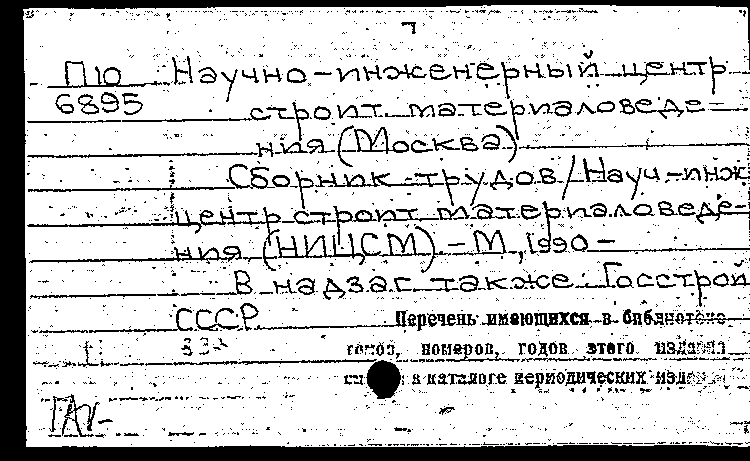 П10 Научно-инженерный центр
6895 строит. материаловеде-
ния (Москва)
Сборник трудов / Науч.-инж
центр строит. материаловеде-
ния (НИЦСМ). - М., 1990 -
В надзаг. также: Госстрой
СССР
Перечень имеющихся в библиотеке
томов, номеров, годов этого издания
в каталоге периодических изда